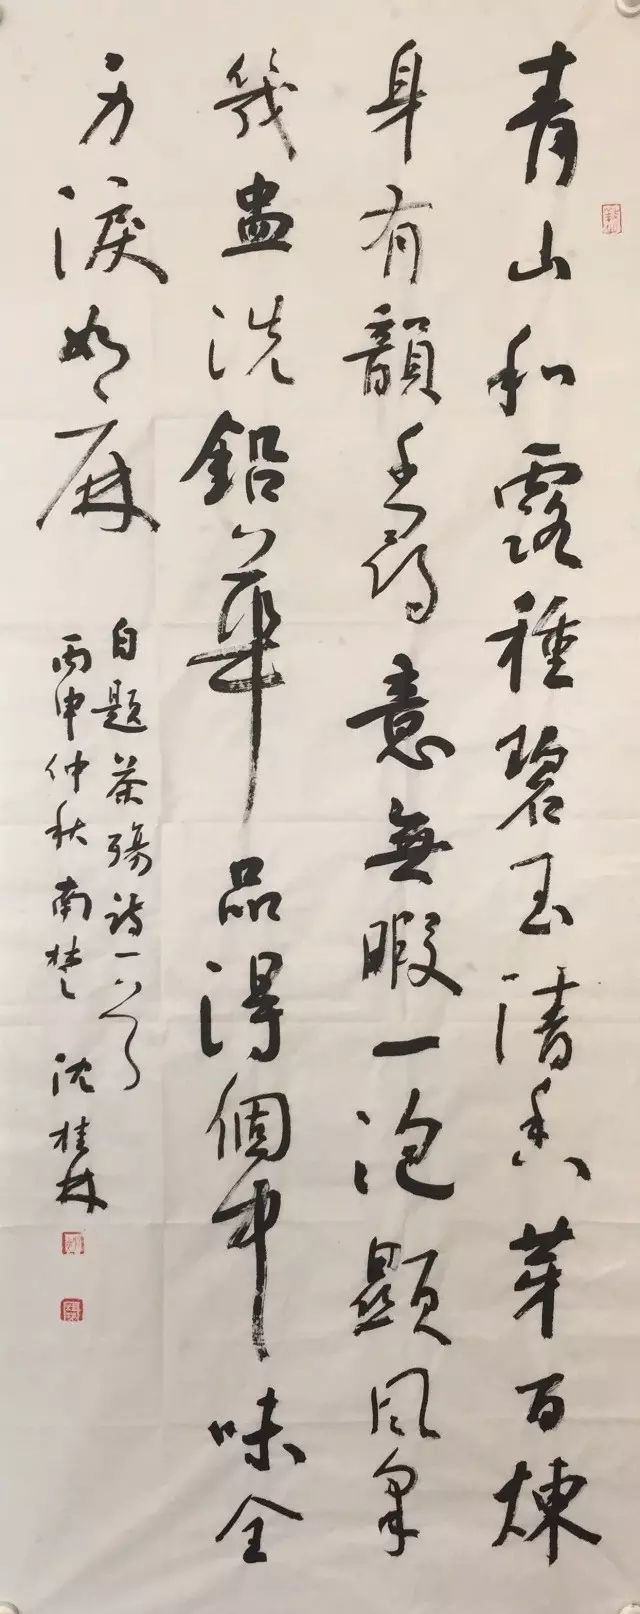 青山和露種碧玉清香芽百煉
身有韻千尋意無暇一泡顯風
幾盞洗鉛華品得個中味全
淚如麻
自題茶殤詩一首
丙申仲秋南楚沈桂林